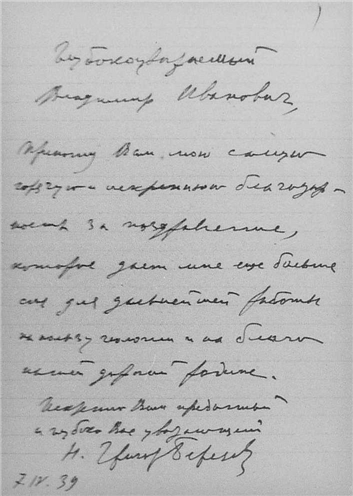 Глубокоуважаемый
Владимир Иванович,
Приношу Вам мою самую
горячую и искреннюю благодар-
ность за поздравление,
которое дает мне еще больше
сил для дальнейшей работы
на пользу геологии и на благо
нашей дорогой родины.
Искренно Вам преданный
и глубоко Вас уважающий
Н.
7.IV.39